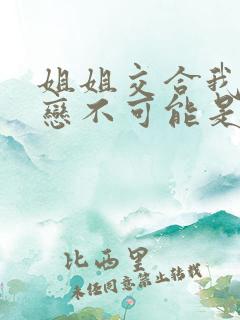 姐姐交合我
戀不可能是
比西里
未任同意禁止转载